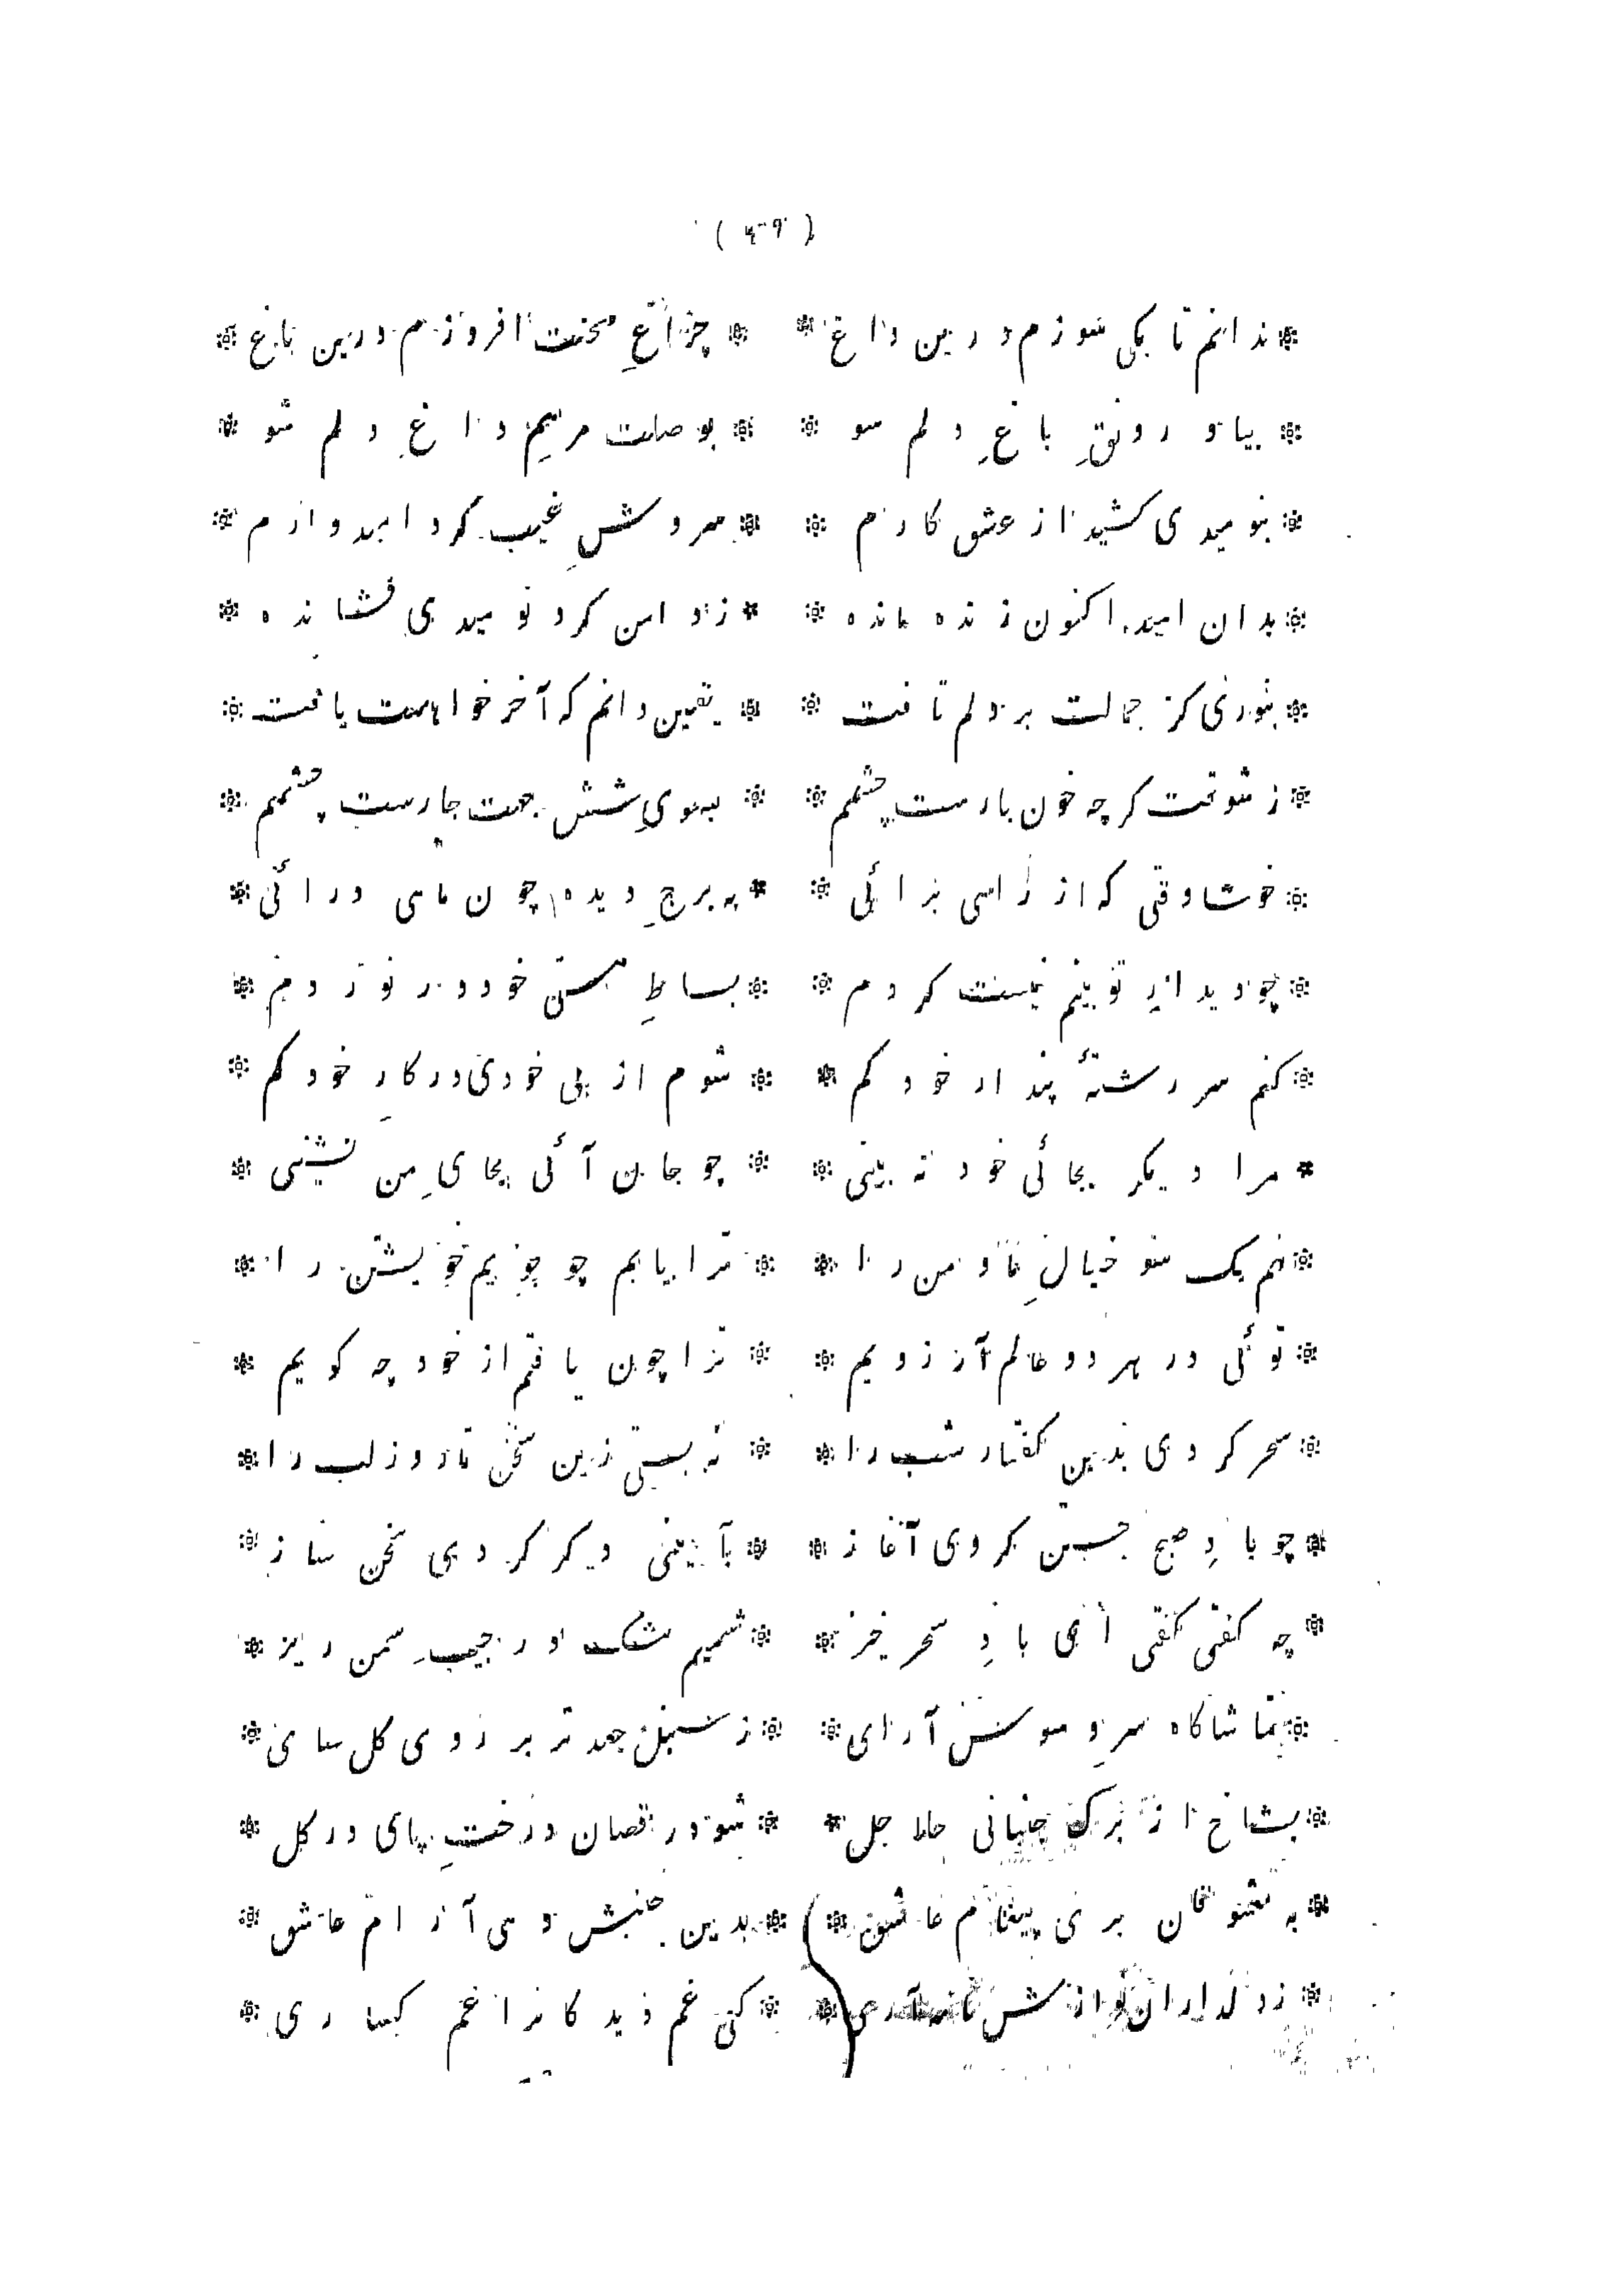 ( ۶۹ )
* ندانم تا بکی سوزم درین داغ * * چراغ محنت افروزم درین باغ *
* بیا و رونقِ باغِ دلم شو * * بوصلت مرهمِ داغِ دلم شو *
* بنومیدی کشید از عشق کارم * * سروشِ غیب کرد امیدوارم *
* بدان امید اکنون زنده مانده * * ز دامن کرد نومیدی فشانده *
* بنوری کز جمالت بر دلم تافت * * یقین دانم که آخر خواهمت یافت *
* ز شوقت کرچه خون بارست چشمم * * بسویِ شش جهت چارست چشمم *
* خوشا وقتی که از راهی برائی * * به برجِ دیده چون ماهی درائی *
* چو دیدارِ تو بینم نیست کردم * * بساطِ هستی خود در نوردم *
* کنم سررشتهٔ پندار خود کم * * شوم از بی خودی در کارِ خود کم *
* مرا دیکر بجائی خود نه بینی * * چو جان آئی بجایِ من نشینی *
* نهم یک سو خیالِ ما و من را * * ترا یابم چو جویم خویشتن را *
* توئی در هر دو عالم آرزویم * * ترا چون یافتم از خود چه کویم *
* سحر کردی بدین کفتار شب را * * نه بستی زین سخن تا روز لب را *
* چو بادِ صبح جستن کردی آغاز * * بآیینی دیکر کردی سخن ساز *
* چه کفتی کفتی ای بادِ سحرخیز * * شمیم مشک در جیبِ سمن ریز *
* تماشاکاه سرو و سوسن آرای * * ز سنبل جعد تر بر روی کل سای *
* بشاخ از برک جنبانی جلاجل * * شود رقصان درختِ پای در کل *
* به معشوقان بری پیغام عاشق * * بدین جنبش دهی آرام عاشق *
* ز دلداران نوازش نامه آری * * کنی غمدیدکانرا غمکساری *